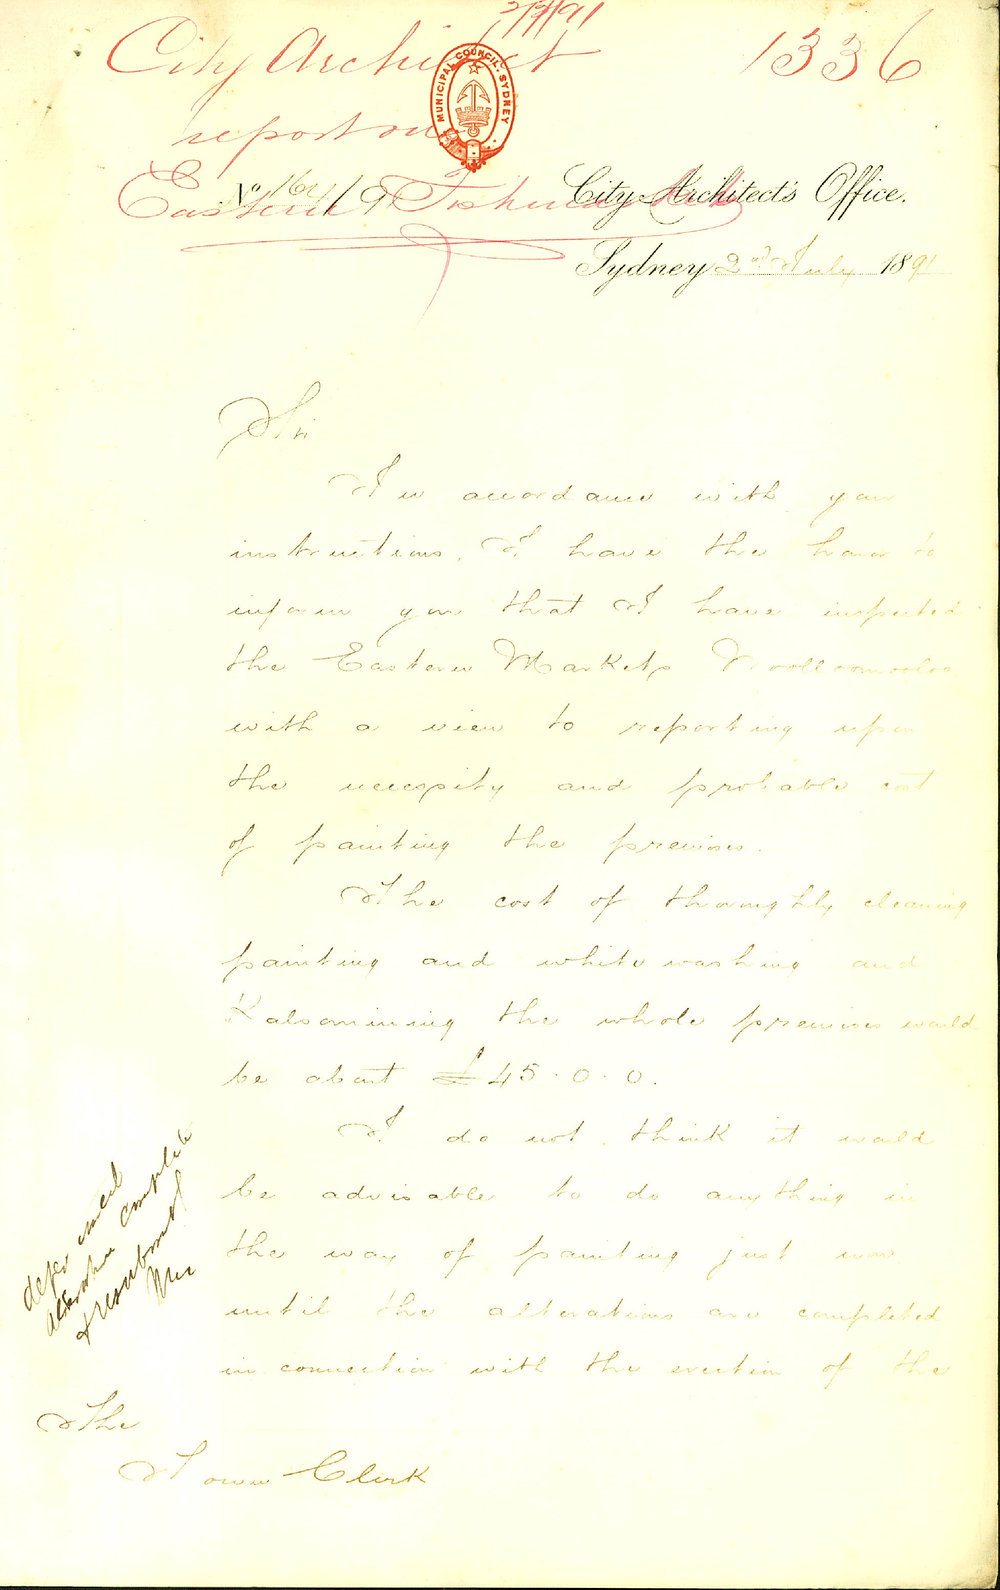 2/7/91
City Architect 1336
report on
Eastern Fish Market
MUNICIPAL COUNCIL SYDNEY
No 91 City Architect's Office.
Sydney 2nd July 1891
Sir
In accordance with your
instructions, I have the honor to
inform you that I have inspected
the Eastern Markets Woolloomooloo
with a view to reporting upon
the necessity and probable cost
of painting the premises.
The cost of thoroughly cleaning
painting and white washing and
Kalsomining the whole premises would
be about £45.0.0.
I do not think it would
be advisable to do anything in
the way of painting just now
until the alterations are completed
in connection with the erection of the
defer until
alteration complete
& resubmit
The
Town Clerk